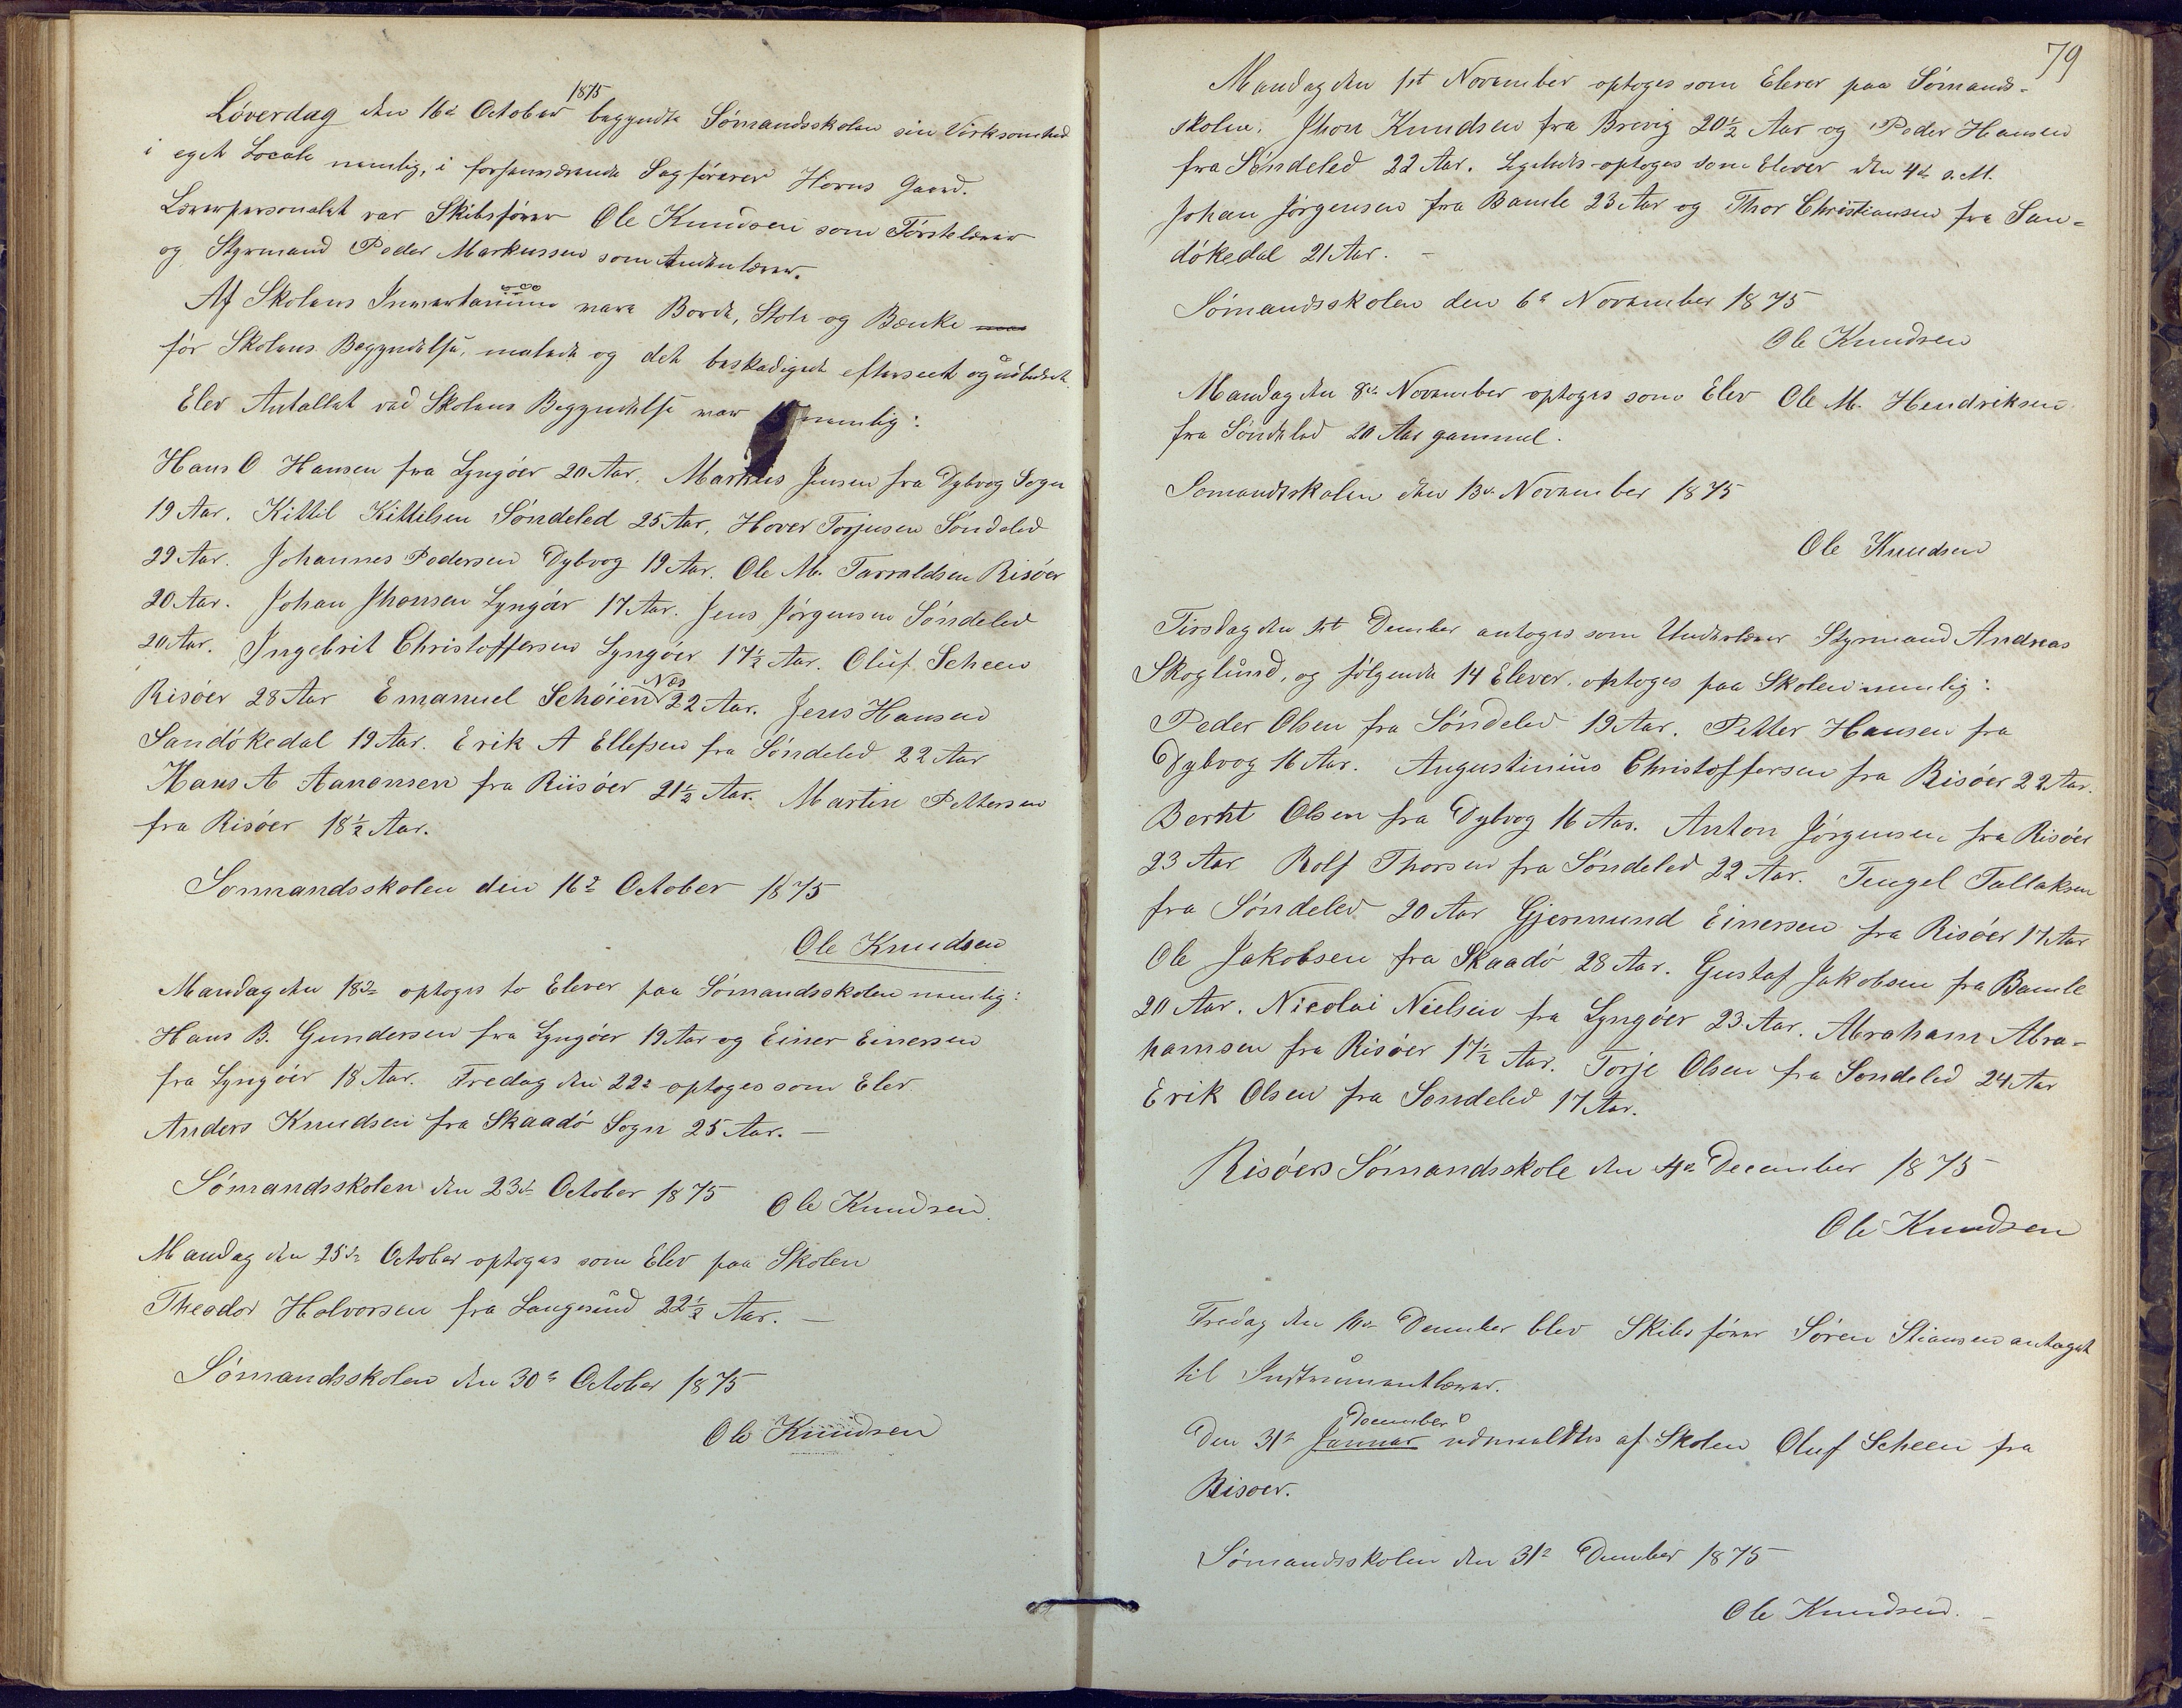 Løverdag den 16de October 1875 begyndte Sømandsskolen sin Virksomhed
i eget Locale nemlig, i forhenværende Sagfører Horns Gaard.
Lærerpersonalet var Skibsfører Ole Knudsen som Førstelærer
og Styrmand Peder Markussen som Andenlærer.
Af Skolens Inventarium vare Borde, Stole og Bænke
før Skolens Begyndelse, malede og det beskadigede efterseet og udbedret.
Elev Antallet ved Skolens Begyndelse var nemlig:
Hans O Hansen fra Lyngöer 20 Aar, Markus Jensen fra Dybvog Sogn
19 Aar. Kittil Kittilsen Söndeled 25 Aar, Hover Torjusen Söndeled
29 Aar. Johannes Pedersen Dybvog 19 Aar. Ole M. Tarraldsen Risöer
20 Aar. Johan Jhonsen Lyngöer 17 Aar. Jens Jörgensen Söndeled
20 Aar. Ingebrit Christoffersen Lyngöer 17½ Aar. Oluf Scheen
Risöer 28 Aar Emanuel Schöien Næs 22 Aar. Jens Hansen
Sandökedal 19 Aar. Erik A Ellefsen fra Söndeled 22 Aar
Hans A Aanonsen fra Riisöer 21½ Aar. Martin Pettersen
fra Risöer 18½ Aar.
Sømandsskolen den 16de October 1875
Ole Knudsen
Mandag den 18de optoges to Elever paa Sömandsskolen nemlig:
Hans B. Gundersen fra Lyngöer 19 Aar og Einer Einersen
fra Lyngöer 18 Aar. Fredag den 22de optoges som Elev
Anders Knudsen fra Skaadö Sogn 25 Aar. —
Sömandsskolen den 23de October 1875 Ole Knudsen.
Mandag den 25de October optoges som Elev paa Skolen
Theodor Halvorsen fra Langesund 22½ Aar. —
Sömandsskolen den 30te October 1875
Ole Knudsen
79
Mandag den 1st November optoges som Elever paa Sömands-
skolen. Jhon Knudsen fra Brevig 20½ Aar og Peder Hansen
fra Söndeled 22 Aar. Ligeledes optoges som Elever den 4de s. M.
Johan Jörgensen fra Bamle 23 Aar og Thor Christiansen fra San-
dökedal 21 Aar. —
Sömandsskolen den 6te November 1875
Ole Knudsen
Mandag den 8de November optoges som Elev Ole M. Hendriksen
fra Söndeled 20 Aar gammel.
Somandsskolen den 13de November 1875
Ole Knudsen
Tirsdag den 1st Dember antoges som Underlærer Styrmand Andreas
Skoglund, og følgende 14 Elever, optoges paa Skolen nemlig:
Peder Olsen fra Söndeled 19 Aar. Petter Hansen fra
Dybvog 16 Aar. Augustinius Christoffersen fra Risöer 22 Aar.
Berht Olsen fra Dybvog 16 Aar. Anton Jörgensen fra Risöer
23 Aar Rolf Thorsen fra Söndeled 22 Aar. Tengel Tallaksen
fra Söndeled 20 Aar Gjermund Einersen fra Risöer 17 Aar
Ole Jakobsen fra Skaadö 28 Aar. Gustaf Jakobsen fra Bamle
20 Aar. Nicolai Nielsen fra Lyngöer 23 Aar. Abraham Abra-
hamsen fra Risöer 17½ Aar. Torje Olsen fra Sondeled 24 Aar
Erik Olsen fra Sondeled 17 Aar.
Risöers Sömandsskole den 4de December 1875
Ole Knudsen
Fredag den 10de Dember blev Skibsförer Sören Stiansen antaget
til Instrumentlærer.
Den 31te Januar December udmeldtes af Skolen Oluf Scheen fra
Risoer.
Sömandsskolen den 31te Dember 1875
Ole Knudsen. —